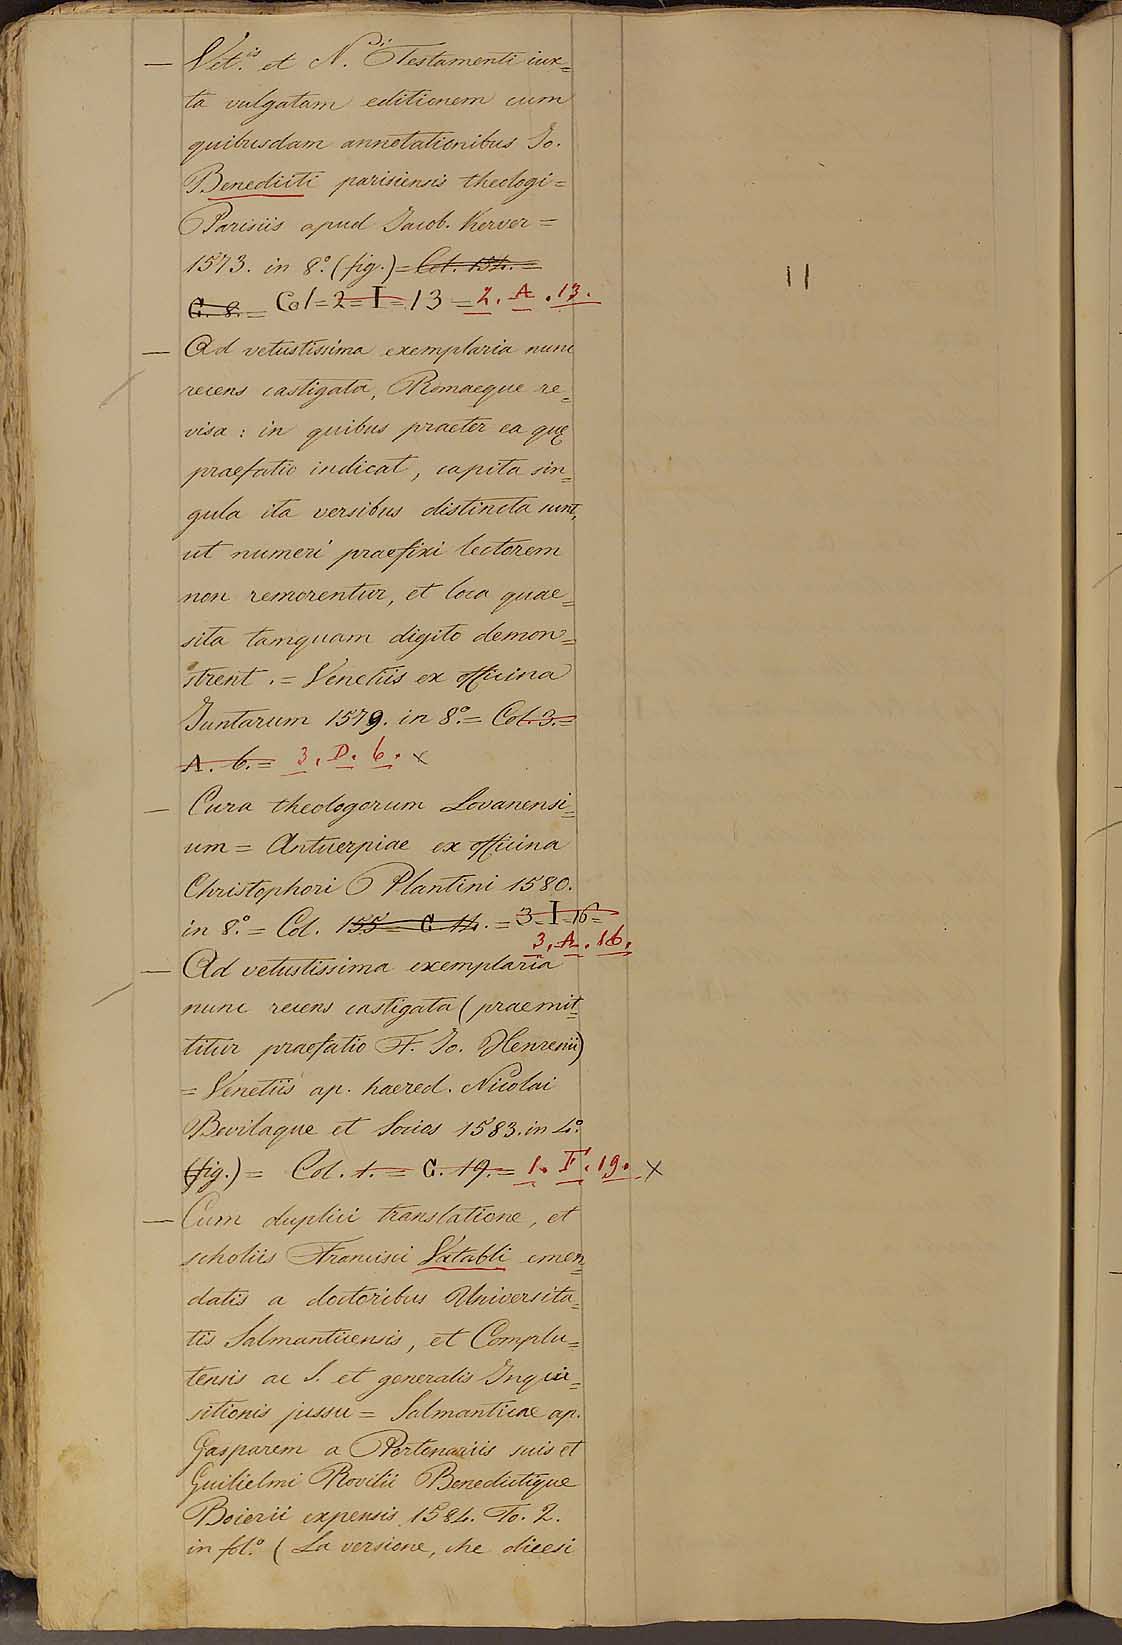 — Vet.is et N.ii Testamenti iux=
ta vulgatam editionem cum
quibusdam annotationibus Jo.
Benedicti parisiensis theologi=
Parisiis apud Jacob. Kerver=
1573. in 8.° (fig.) = Col. 154. =
G. 8. = Col=2=I=13 = 2. A. 13.
— Ad vetustissima exemplaria nunc
recens castigata, Romaeque re=
visa: in quibus praeter ea quę
praefatio indicat, capita sin=
gula ita versibus distincta sunt,
ut numeri praefixi lectorem
non remorentur, et loca quae=
sita tamquam digito demon=
strent. = Venetiis ex officina
Juntarum 1579. in 8.° = Col. 3. =
A. 6. = 3. D. 6. x
— Cura theologorum Lovanensi=
um = Antuerpiae ex officina
Christophori Plantini 1580.
in 8.° = Col. 155 = G. 14. = 3-I-16=
3. A. 16.
— Ad vetustissima exemplaria
nunc recens castigata (praemit=
titur praefatio F. Jo. Hentenii)
= Venetiis ap. haered. Nicolai
Bevilaque et Socios 1583. in 4.°
(fig.) = Col. 1. = G. 19. = 1. F. 19. x
— Cum duplici translatione, et
scholiis Francisci Vatabli emen=
datis a doctoribus Universita=
tis Salmanticensis, et Complu=
tensis ac S. et generalis Inqui=
sitionis jussu = Salmanticae ap.
Gasparem a Portenariis suis et
Guilielmi Rovilii Benedictique
Boierii expensis 1584. To. 2.
in fol.° (La versione, che dicesi
11